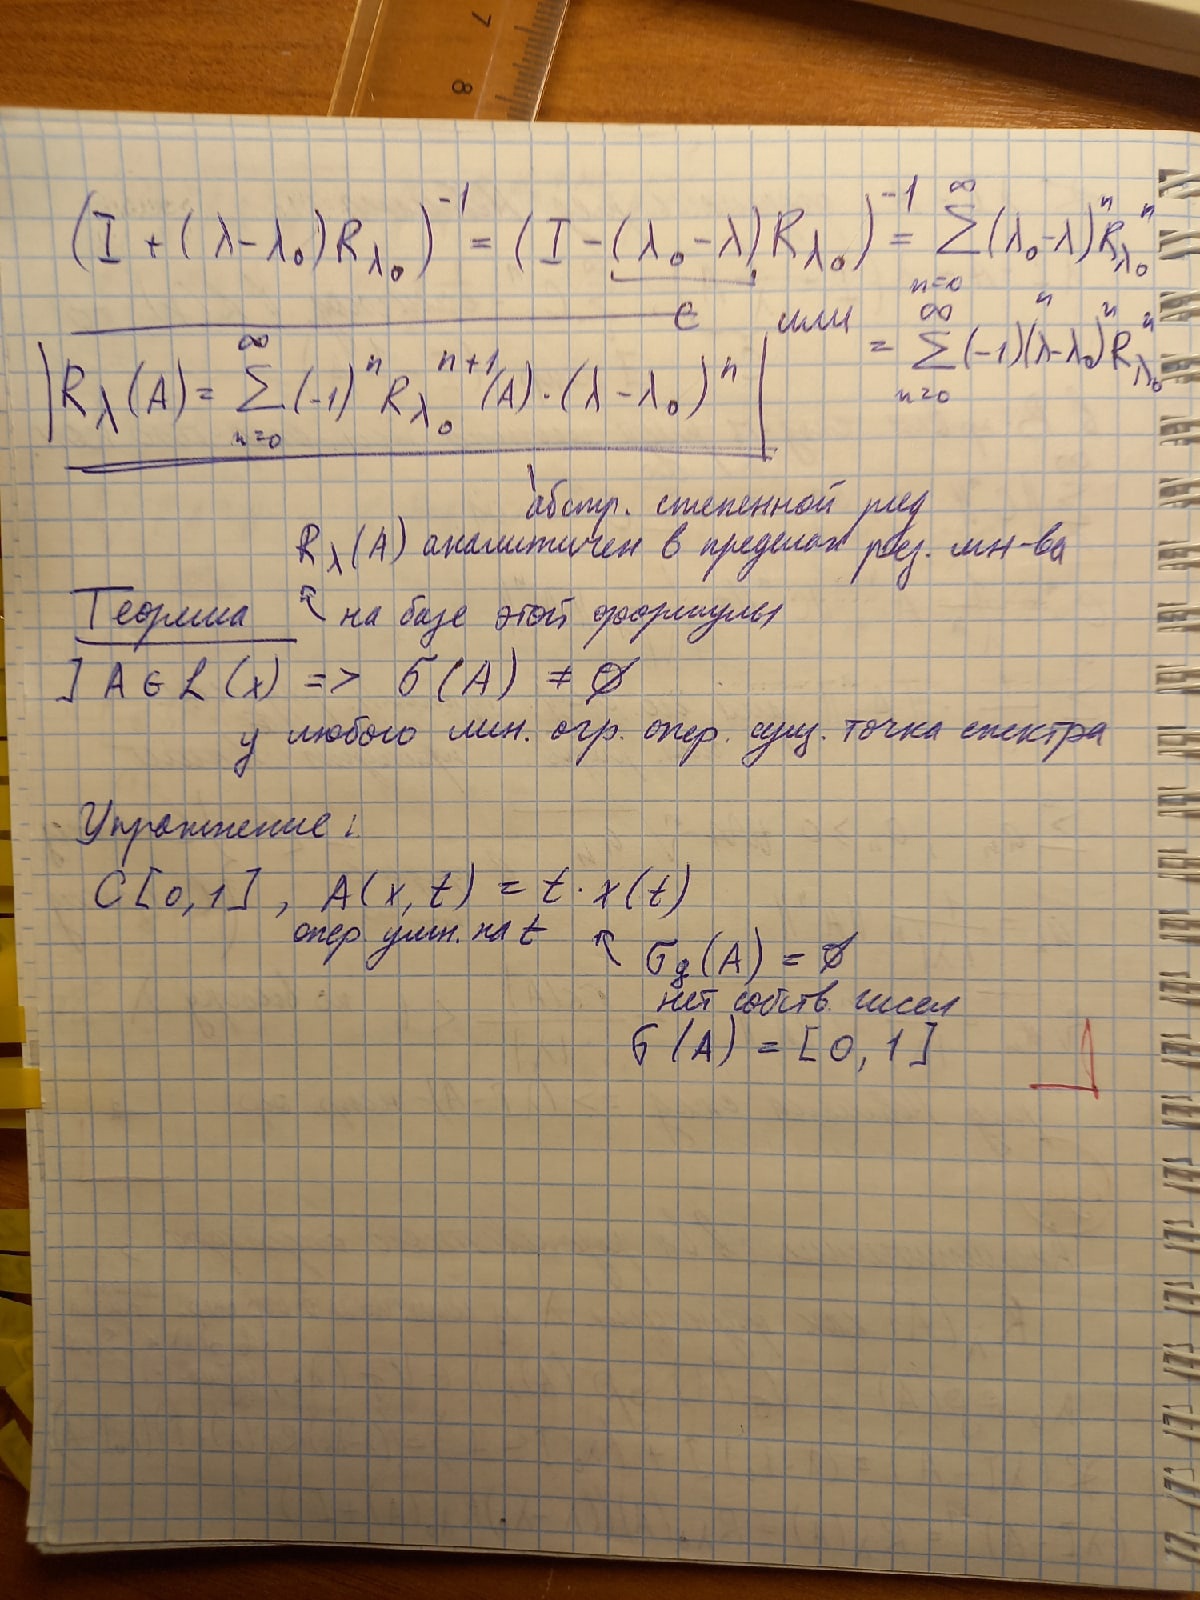 7
8
(I + (λ-λ₀)R_λ₀)⁻¹ = (I - (λ₀-λ)R_λ₀)⁻¹ = ∑_{n=0}^{∞} (λ₀-λ)ⁿ R_λ₀ⁿ
или = ∑_{n=0}^{∞} (-1)ⁿ (λ-λ₀)ⁿ R_λ₀ⁿ
R_λ(A) = ∑_{n=0}^{∞} (-1)ⁿ R_λ₀ⁿ⁺¹(A)·(λ-λ₀)ⁿ
абстр. степенной ряд
R_λ(A) аналитичен в пределах рез. мн-ва
Теорема ↖ на базе этой формулы
] A ∈ L(x) => σ(A) ≠ ∅
у любого лин. огр. опер. сущ. точка спектра
Упражнение:
C[0,1], A(x,t) = t·x(t)
опер умн. на t ↖ σ_g(A) = ∅
нет собств. чисел
σ(A) = [0,1]